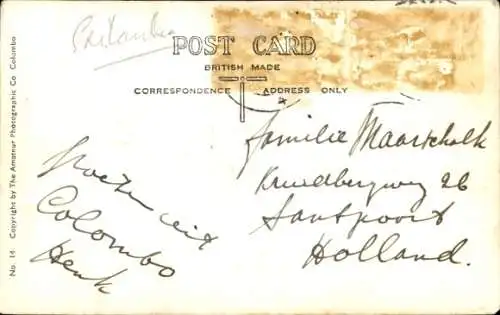 POST CARD
BRITISH MADE
CORRESPONDENCE ADDRESS ONLY
No. 14 Copyright by The Amateur Photographic Co Colombo
Groeten uit
Colombo
Henk
Familie Maarschalk
Kruidbergweg 26
Santpoort
Holland.